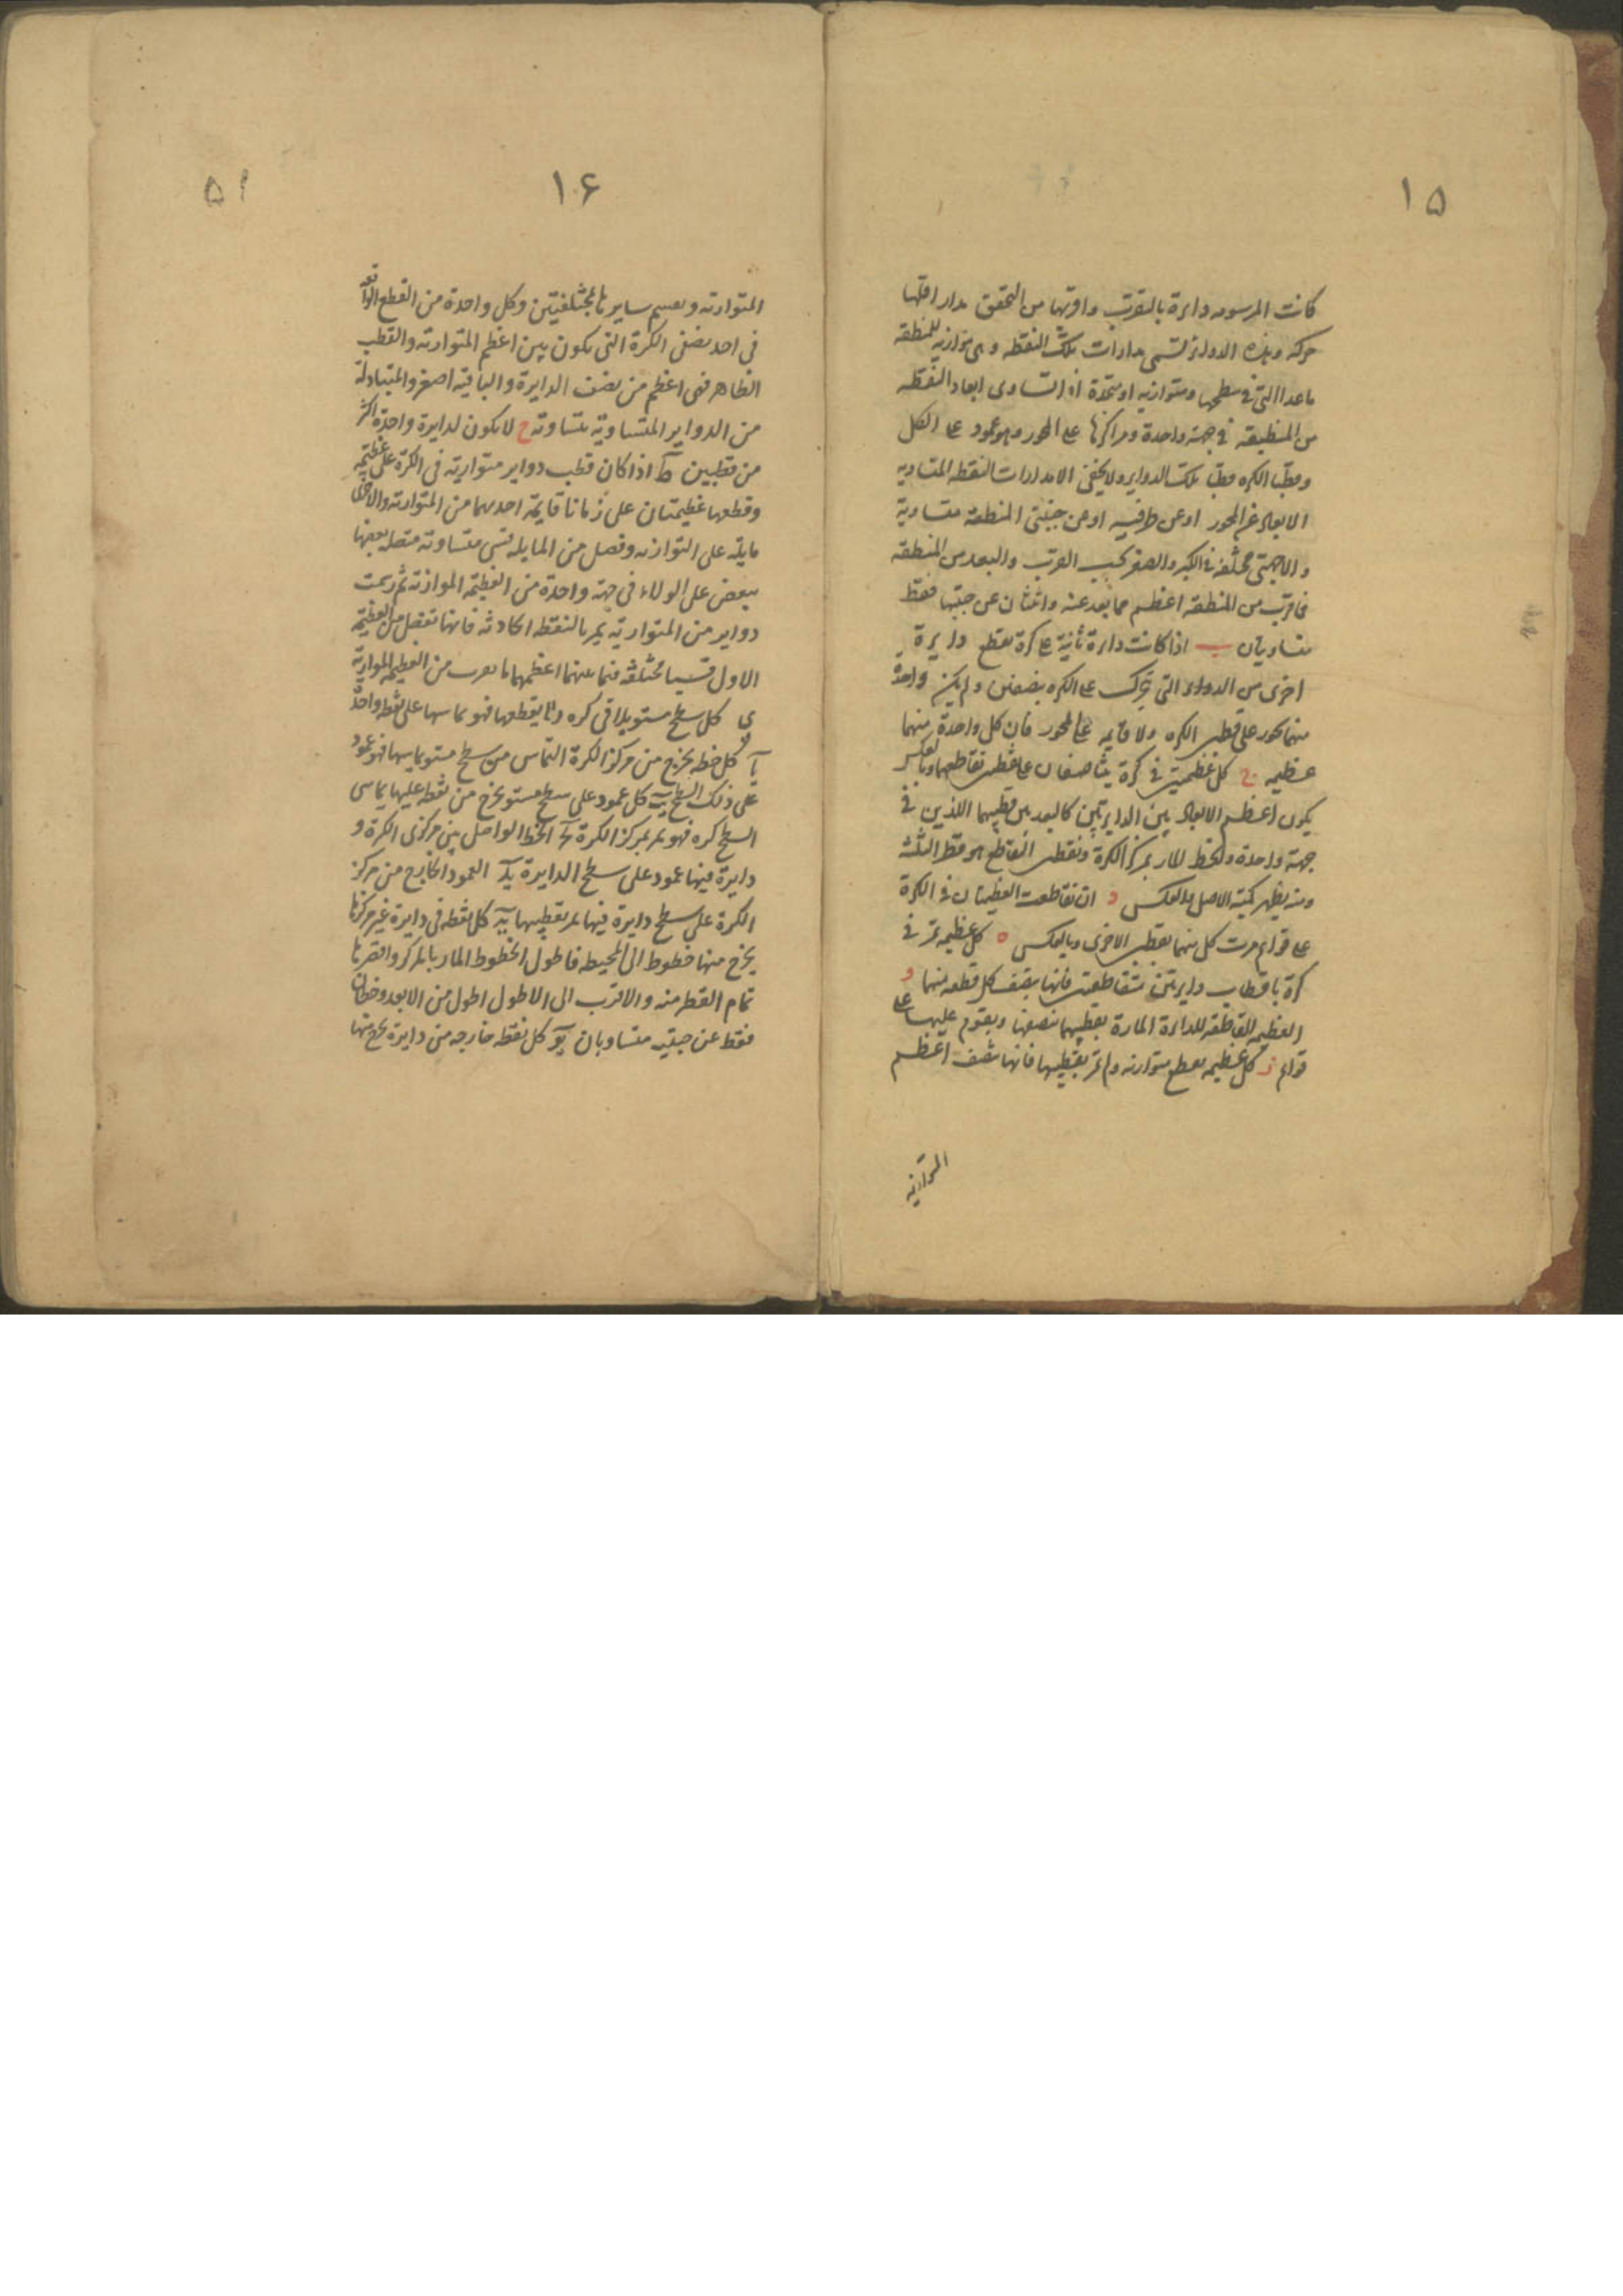 ١۵
كانت المرسومه دايرة بالتقريب واقربها من التحقق مدار اقلها
حركه وهذه الدواير تسمى مدارات تلك النقطه وهى موازيه للمنطقه
ماعدا التى فى سطحها ومتوازيه او متحدة ان تساوى ابعاد النقطه
من المنطقه فى جهة واحدة ومراكزها على المحور وهو عمود على الكل
وقطبا الكره قطبا تلك الدواير ولا يخفى ان مدارات النقطه المتساويه
الابعاد عن المحور او عن طرفيه او عن جنبتى المنطقه متساوية
والا فهى مختلفه فى الكبر والصغر بحسب القرب والبعد من المنطقه
فما قرب من المنطقه اعظم مما بعد عنه واثنان عن جنبتها فقط
متساويان ب اذا كانت دايرة ثابتة على كرة تقطع دايرة
اخرى من الدواير التى تتحرك على الكره بنصفين ولم يكن واحدة
منهما تحور على قطبى الكره ولا قايمه على المحور فان كل واحدة منهما
عظيمه ج كل عظيمتين فى كرة يتناصفان على نقطتى تقاطعهما وبالعكس
يكون اعظم الابعاد بين الدايرتين كالبعد بين قطبيهما اللذين فى
جهة واحدة والخط المار بمركز الكرة ونقطتى التقاطع هو قطر الثلث
ومنه يظهر كمية الاصل بالعكس د ان تقاطعت العظيمتان فى الكرة
على قوايم مرت كل منهما بقطبى الاخرى وبالعكس ه كل عظيمه تمر فى
كرة باقطاب دايرتين متقاطعتين فانها ينصف كل قطعه منهما و
العظيمه القاطعه للدايرة المارة بقطبيهما تنصفها ويقوم عليها على
قوايم ز كل عظيمه تقطع متوازيه ولم تمر بقطبيها فانها تنصف اعظم
المتوازيه
١۶
۵۱
المتوازيه ويقسم سايرها بمختلفتين وكل واحدة من القطع الواقعه
فى احد نصفى الكرة التى يكون بين اعظم المتوازيه والقطب
الظاهر فهى اعظم من نصف الدايرة والباقيه اصغر والمتبادلة
من الدواير المتساوية متساويه ح لا يكون لدايرة واحدة اكثر
من قطبين ط اذا كان قطب دواير متوازيه فى الكرة على عظيمه
وقطعها عظيمتان على زوايا قايمه احديهما من المتوازيه والاخرى
مايله على التوازيه وفصل من المايله قسى متساويه متصله بعضها
ببعض على الولاء فى جهة واحدة من العظيمه الموازيه ثم رسمت
دواير من المتوازيه يمر بالنقطه الحادثه فانها تفصل من العظيمه
الاول قسيا مختلفه فيما بينها اعظمها ما يقرب من العظيمه الموازيه
ى كل سطح مستو يلاقى كره ولا يقطعها فهو يماسها على نقطه واحدة
يا كل خط يخرج من مركز الكرة الى التماس من سطح مستو يماسها فهو عمود
على ذلك السطح يب كل عمود على سطح مستو يخرج من نقطه عليها يماس
السطح كره فهو يمر بمركز الكرة يج الخط الواصل بين مركزى الكرة و
دايرة فيها عمود على سطح الدايرة يد العمود الخارج من مركز
الكرة على سطح دايرة فيها يمر بقطبيها يه كل نقطه فى دايرة غير مركزها
يخرج منها خطوط الى المحيط فاطول الخطوط المار بالمركز واقصرها
تمام القطر منه والاقرب الى الاطول اطول من الابعد وخطان
فقط عن جنبتيه متساويان يو كل نقطه خارجه من دايرة يخرج منها